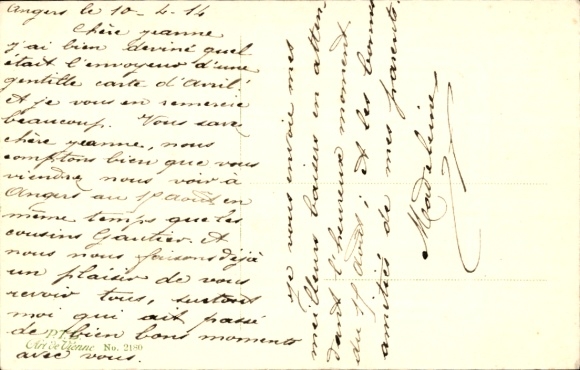 Angers le 10-4-14
Chère Jeanne
j'ai bien deviné quel
était l'envoyeur d'une
gentille carte d'Avril
Et je vous en remercie
beaucoup. Vous savez
chère Jeanne, nous
comptons bien que vous
viendrez nous voir à
Angers au 15 Août en
même temps que les
cousins Gautier. Et
nous nous faisons déjà
un plaisir de vous
revoir tous, surtout
moi qui ait passé
de bien bons moments
avec vous.
Je vous envoie mes
meilleurs baisers en atten
dant l'heureux moment
du 15 Août, et les bonnes
amitiés de mes parents.
Madeleine
Art de Vienne No. 2180